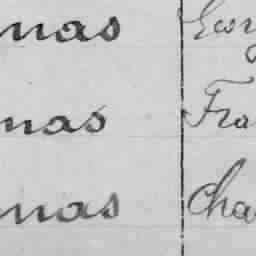 mas Geor
mas Fra
mas Cha